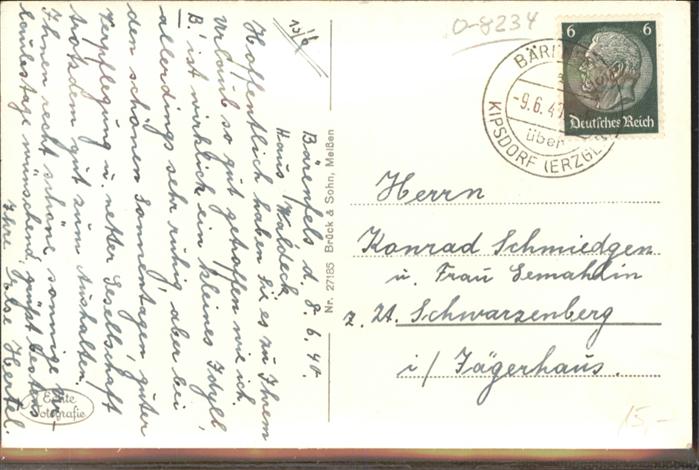 10/6
Bärenfels d. 8. 6. 40.
Haus Waldeck
Hoffentlich haben Sie es zu Ihrem
Urlaub so gut getroffen wie ich.
B. ist wirklich ein kleines Idyll,
allerdings sehr ruhig, aber bei
den schönen Sonnentagen, guter
Verpflegung u. netter Gesellschaft
trotzdem gut zum Aushalten.
Ihnen recht schöne, sonnige Ur-
laubstage wünschend, grüßt bestens
Ihre Ilse Hertel.
Echte
Fotografie
Nr. 27185 Brück & Sohn, Meißen
O-8234
6 6
Deutsches Reich
BÄRE
-9.6.4
über
KIPSDORF (ERZGEB
Herrn
Konrad Schmiedgen
u. Frau Gemahlin
z. Zt. Schwarzenberg
i/ Jägerhaus.
15,-